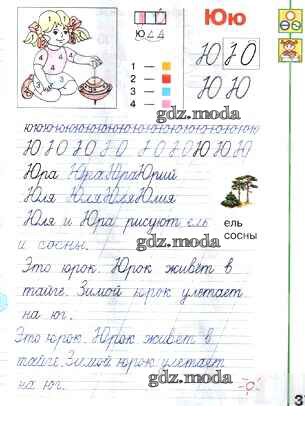 Юю
Ю
1 —
2 —
3 —
4 —
Ю Ю
Ю Ю
gdz.moda
ююююююююююююююююююю
Ю Ю Ю Ю Ю Ю Ю Ю Ю Ю Ю
Юра Юра Юра Юрий
Юля Юля Юля Юлия
Юля и Юра рисуют ель
и сосны.
ель
сосны
gdz.moda
Это юрок. Юрок живёт в
тайге. Зимой юрок улетает
на юг.
Это юрок. Юрок живёт в
тайге. Зимой юрок улетает
на юг.
gdz.moda
3